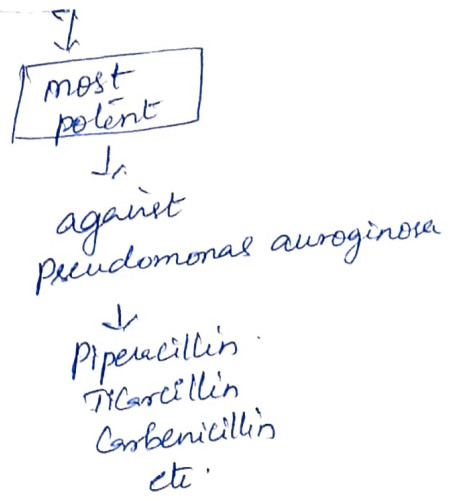 most
potent
against
Pseudomonas auroginosa
Piperacillin
Ticarcillin
Carbenicillin
etc.